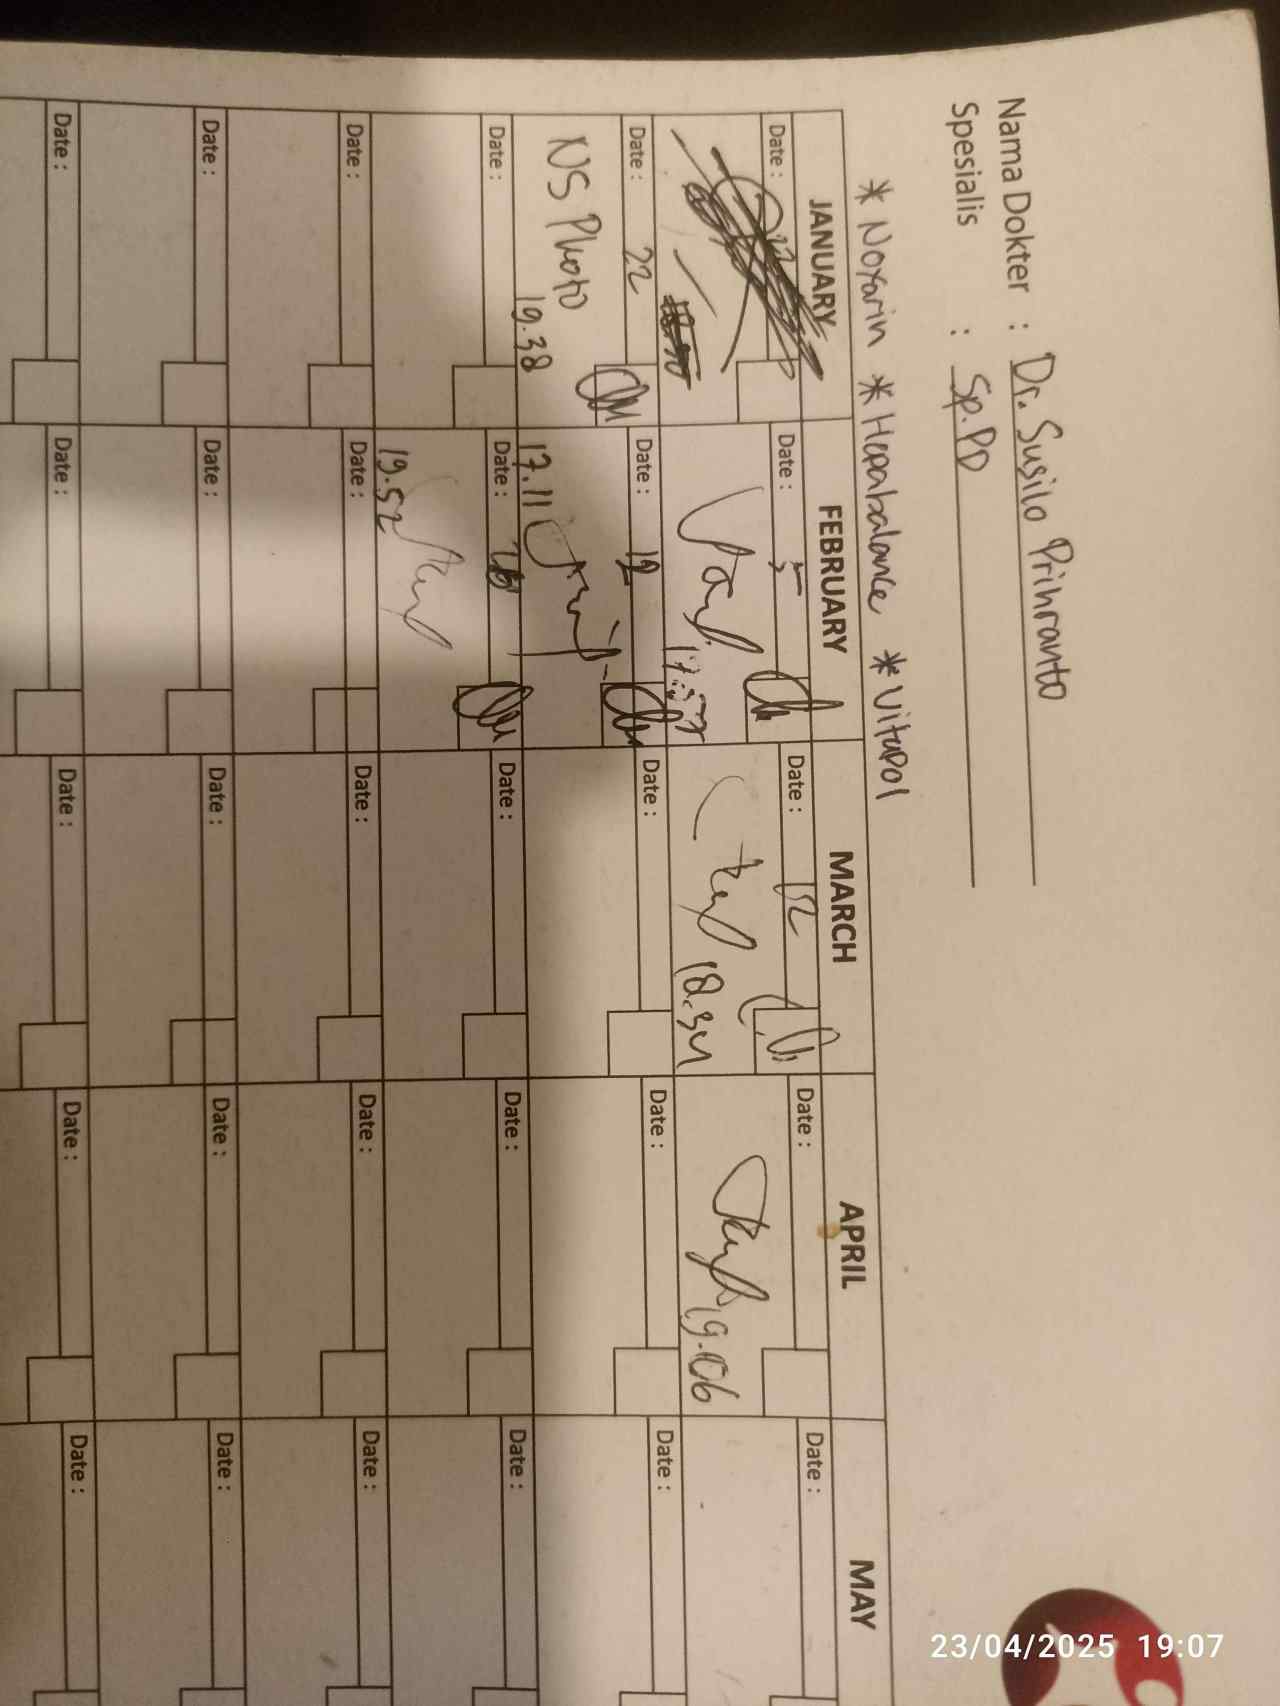 Nama Dokter : Dr. Susilo Prihranto
Spesialis : Sp.PD
* Noxarin * Hepabalance * Vitapol
JANUARY FEBRUARY MARCH APRIL MAY
Date : Date : 5 Date : 12 Date : Date :
17.57 18.34 19.06
Date : 22 Date : 19 Date : Date : Date :
NS Photo
19.38 17.11
Date : Date : 26 Date : Date : Date :
19.52
Date : Date : Date : Date : Date :
Date : Date : Date : Date : Date :
Date : Date : Date : Date : Date :
23/04/2025 19:07